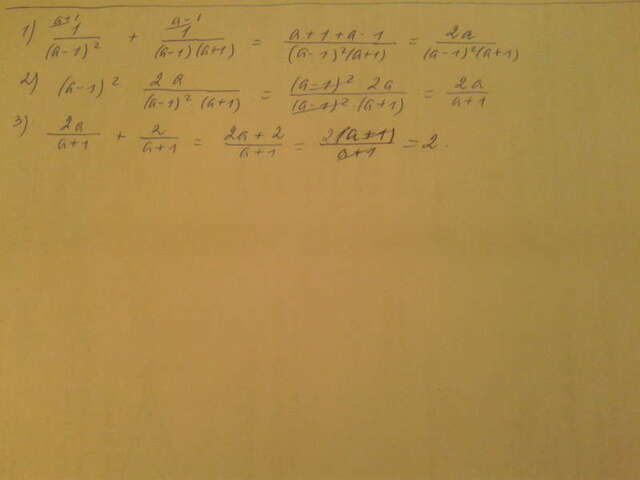 1) a+1 1/(a-1)² + a-1 1/(a-1)(a+1) = a+1+a-1/(a-1)²(a+1) = 2a/(a-1)²(a+1)
2) (a-1)² · 2a/(a-1)²·(a+1) = (a-1)² 2a/(a-1)²·(a+1) = 2a/a+1
3) 2a/a+1 + 2/a+1 = 2a+2/a+1 = 2(a+1)/a+1 = 2.